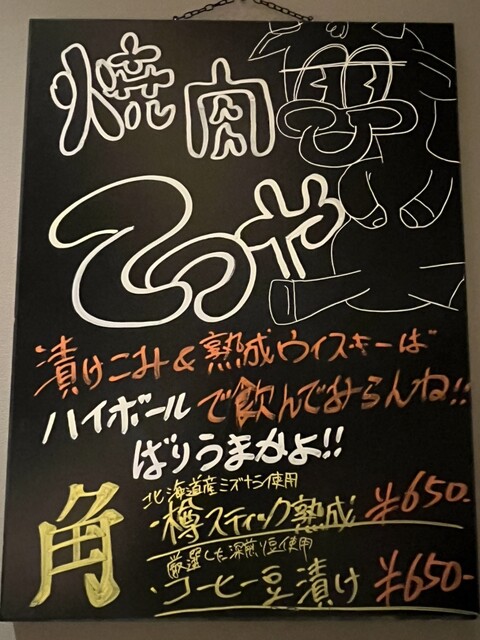 焼肉
てつや
漬けこみ&熟成ウイスキーば
ハイボールで飲んでみらんね!!
ばりうまかよ!!
角
北海道産ミズナラ使用
・樽スティック熟成 ¥650-
厳選した深煎り豆使用
・コーヒー豆漬け ¥650-